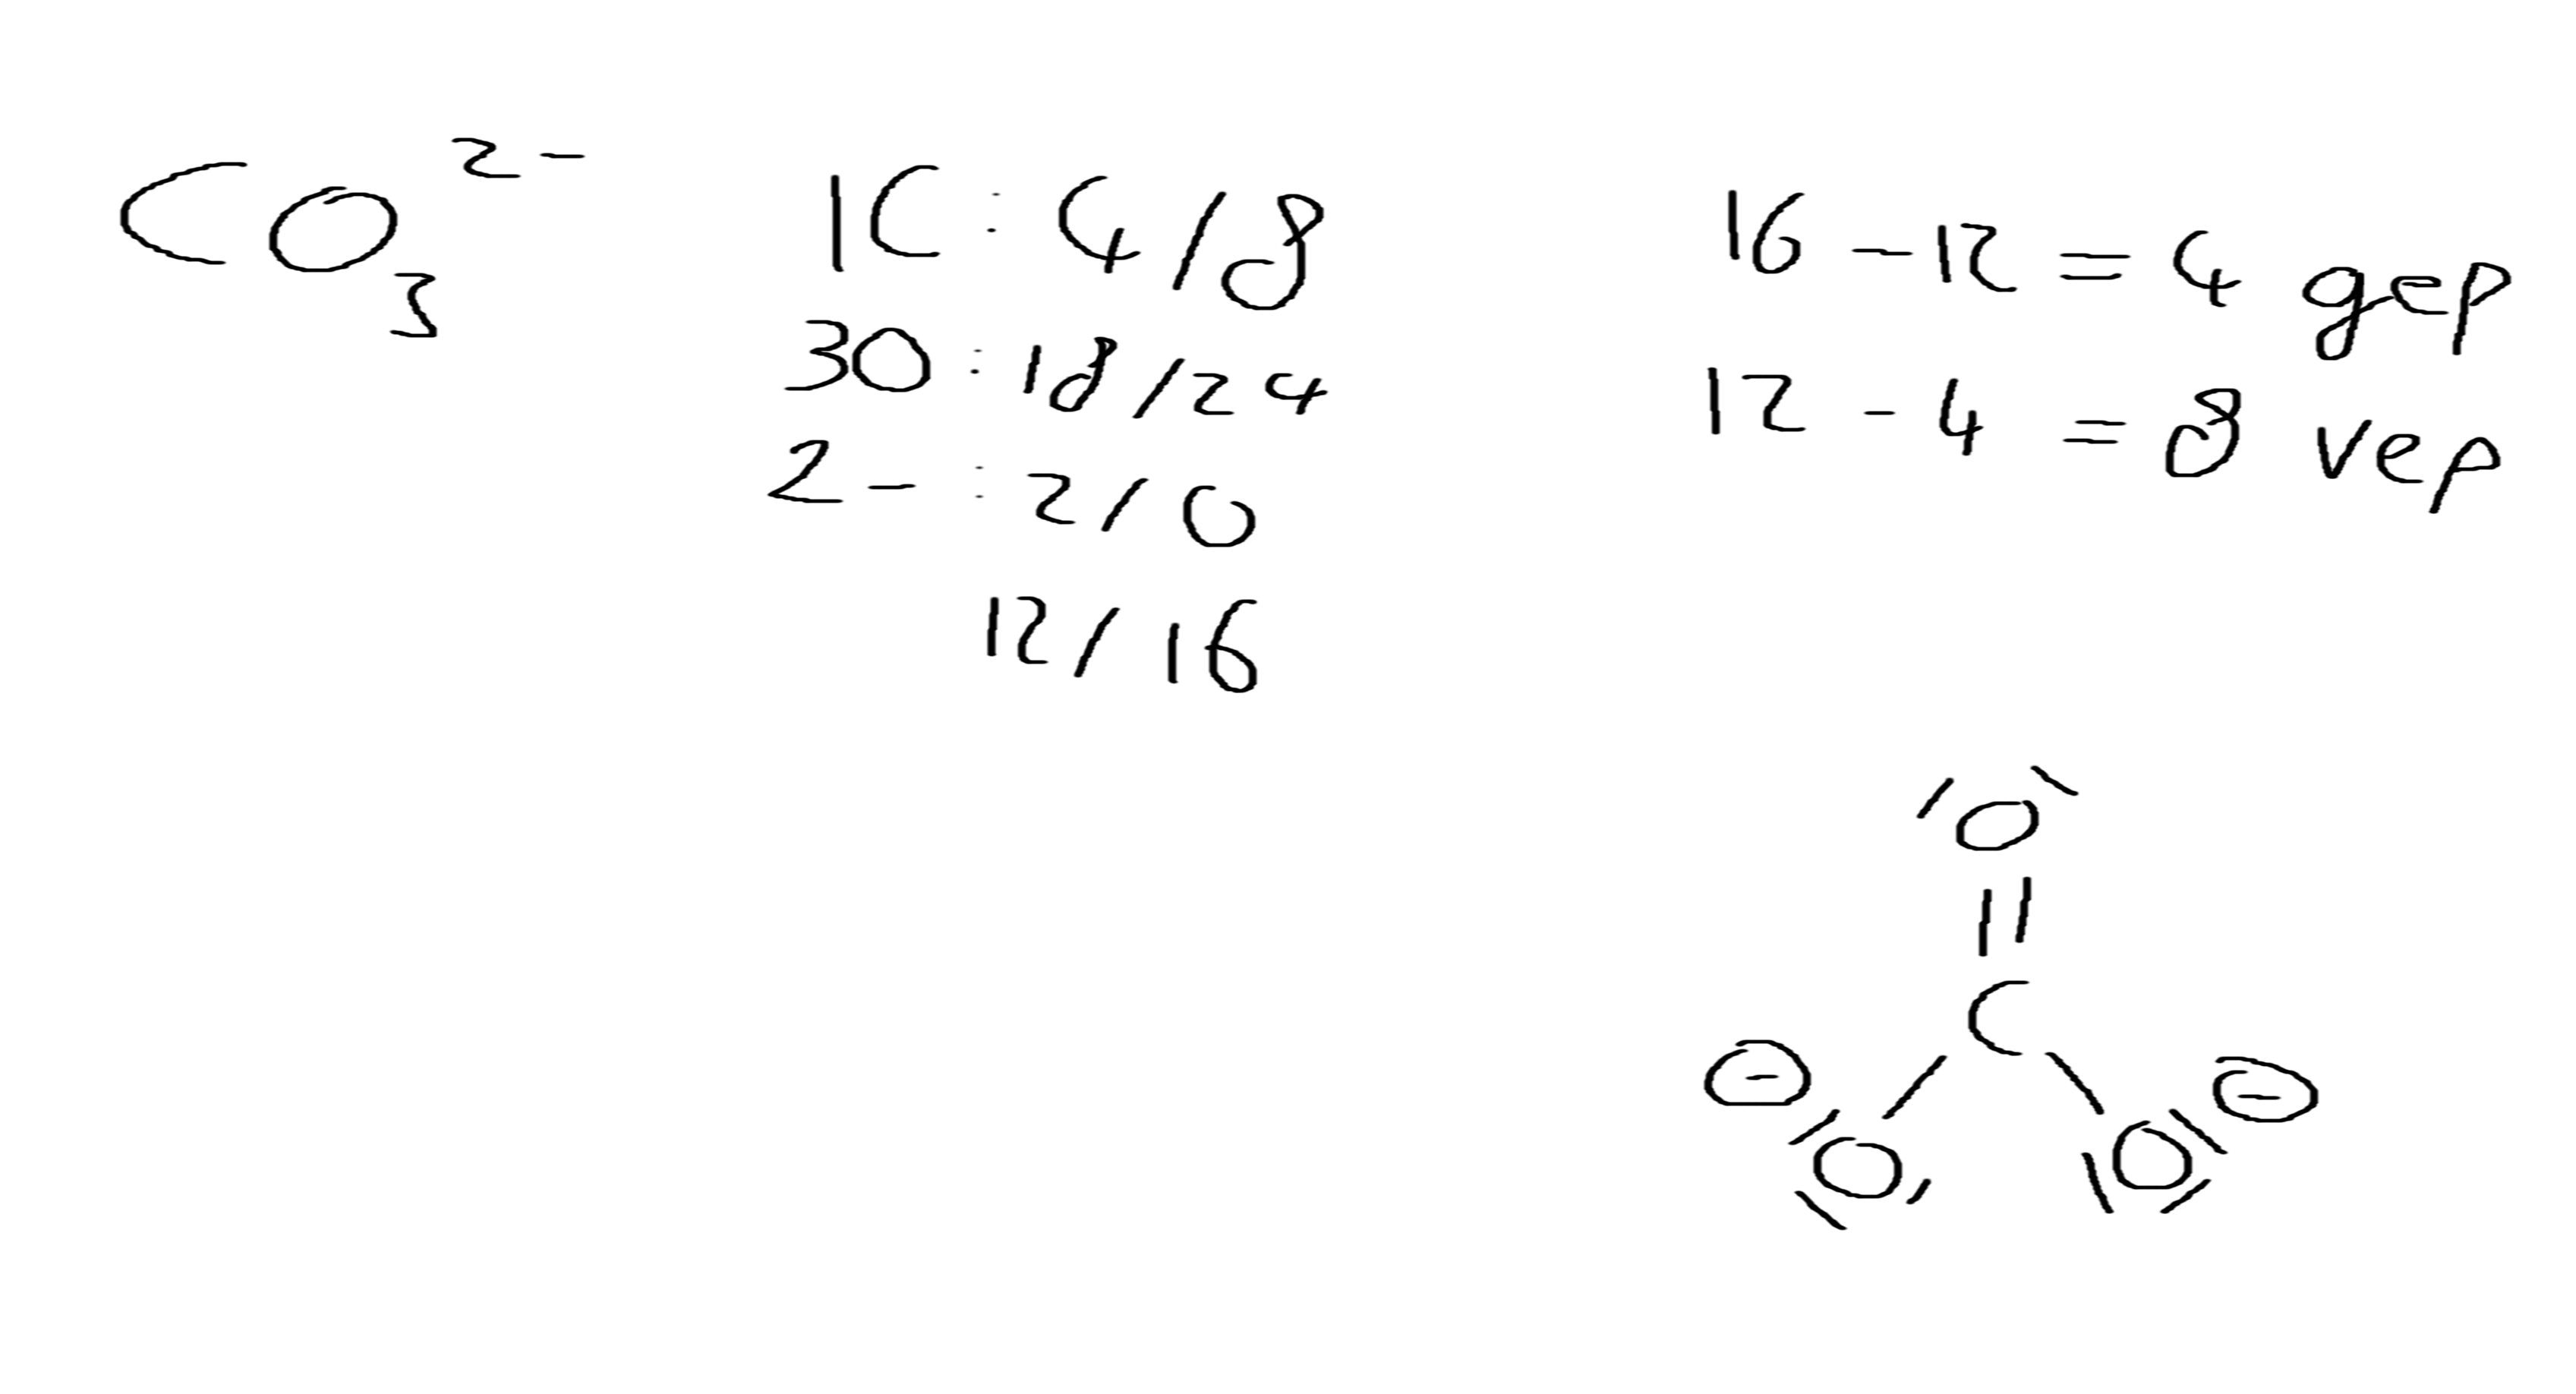 CO₃²⁻
1C : 4/8
3O : 18/24
2- : 2/0
12/16
16 - 12 = 4 gep
12 - 4 = 8 vep
O
C
⊖ ⊖
O O